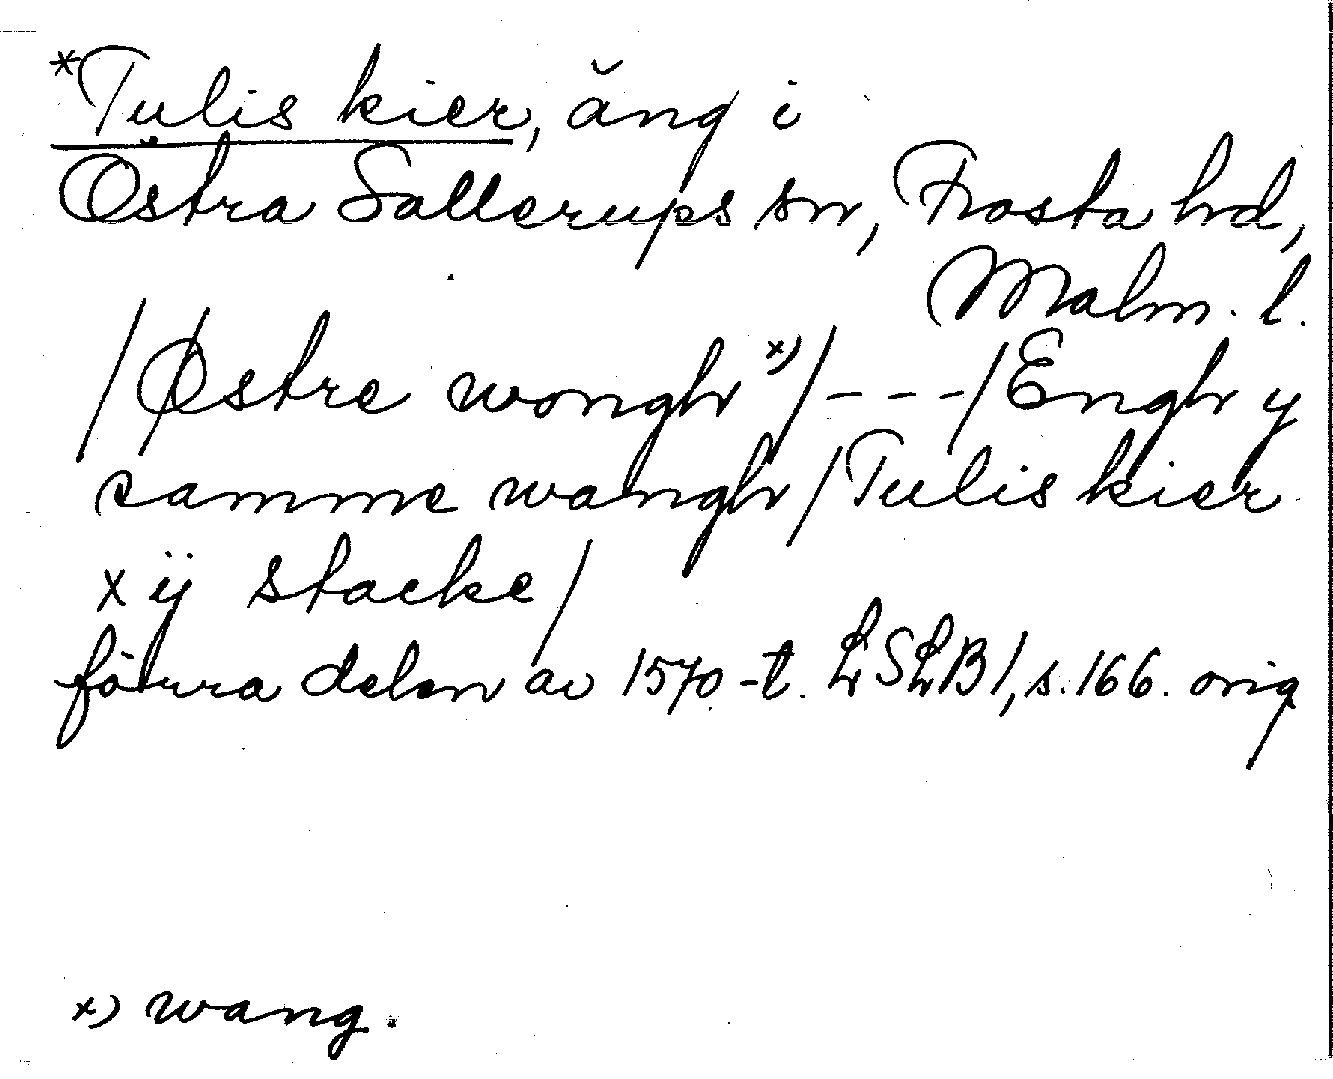 *Tulis kier, äng i
Östra Sallerups sn, Frosta hd,
Malm. l.
/Østre wongh x)/---/Engh y
samme wangh/Tulis kier
xij stacke/
förra delen av 1570-t. LSLB1, s.166. orig
x) wang.